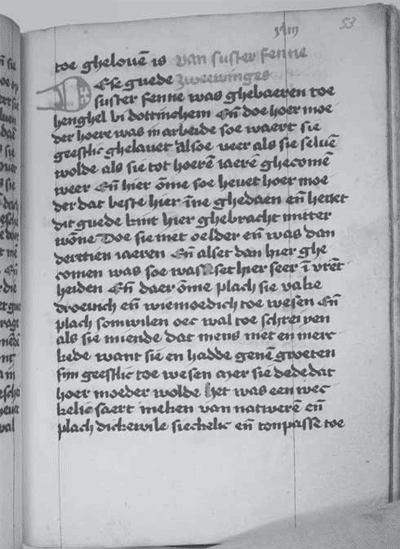 xlviij 53
toe ghelouēn is van suster fenne
Ese guede zweewinges
suster fenne was ghebaeren toe
henghel bi dottinchem Eñ doe hoer moe
der hoere was in arbeide soe waert sie
geestlic ghelauet Alsoe veer als sie seluē
wolde als sie tot hoerē iaerē ghecomē
weer Eñ hier ōme soe heuet hoer moe
der dat beste hier īne ghedaen eñ heuet
dit guede kint hier ghebracht mitter
wōne Doe sie niet oelder eñ was dan
dertien iaeren Eñ alset dan hier ghe
comen was soe was set hier seer ī vrēt
heiden Eñ daer ōme plach sie vake
droeuich eñ wiemoedich toe wesen Eñ
plach somwilen oec wal toe schreiven
als sie miende dat mens niet en merc
kede want sie en hadde genē groeten
sijn geestlic toe wesen mer sie dede dat
hoer moeder wolde het was een wec
kelic saert meken van natweren eñ
plach dickewile siechelic eñ tonpasse toe